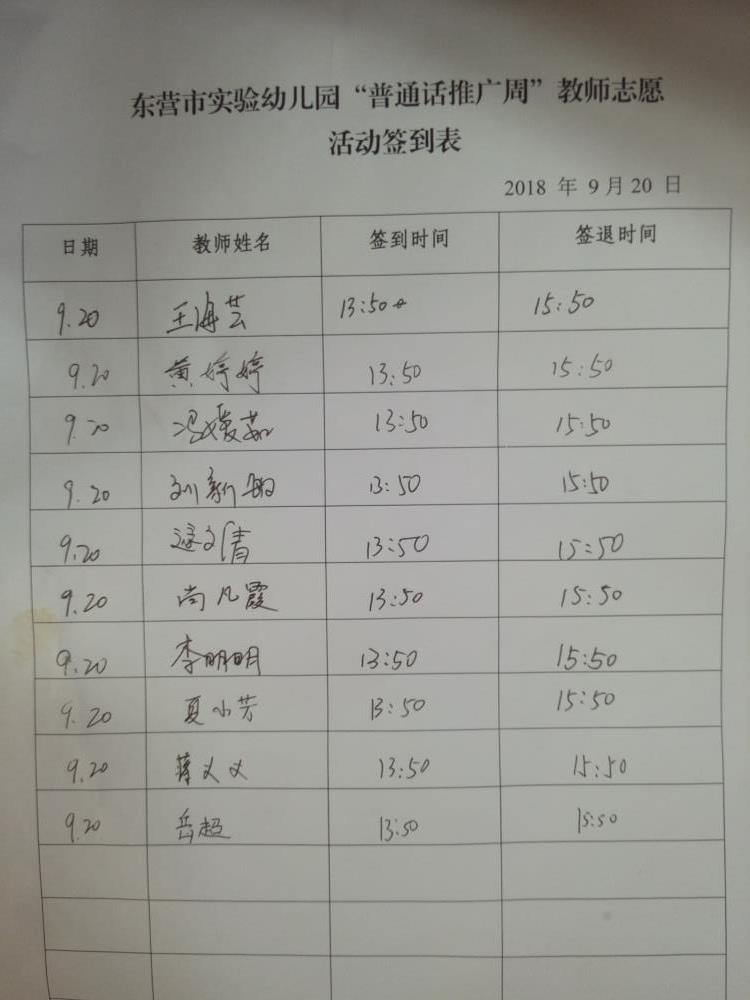 东营市实验幼儿园“普通话推广周”教师志愿
活动签到表
2018 年 9月20 日
日期 教师姓名 签到时间 签退时间
9.20 王海芸 13:50 15:50
9.20 黄婷婷 13:50 15:50
9.20 冯媛茹 13:50 15:50
9.20 刘新 13:50 15:50
9.20 文清 13:50 15:50
9.20 尚凡霞 13:50 15:50
9.20 李明明 13:50 15:50
9.20 夏小芳 13:50 15:50
9.20 蒋义义 13:50 15:50
9.20 岳超 13:50 15:50